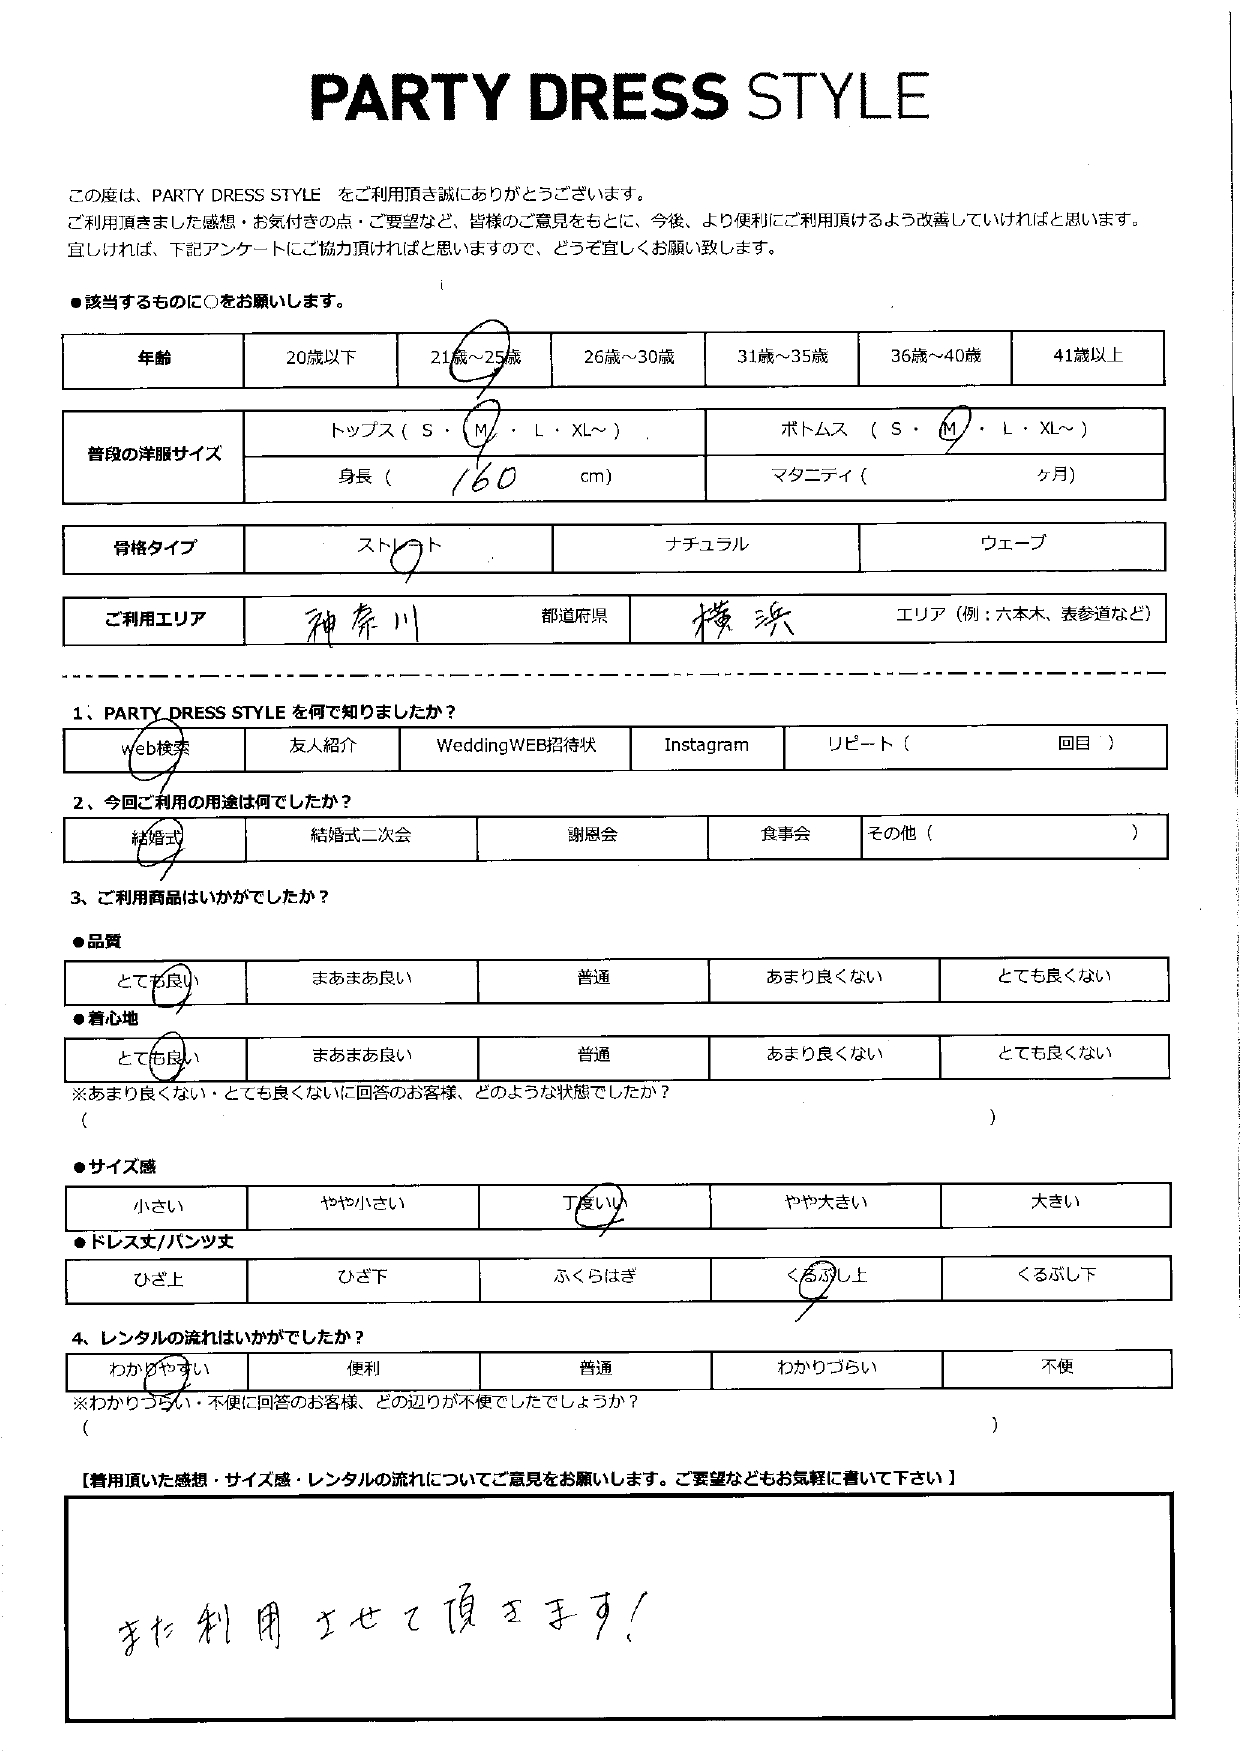 PARTY DRESS STYLE
この度は、PARTY DRESS STYLE をご利用頂き誠にありがとうございます。
ご利用頂きました感想・お気付きの点・ご要望など、皆様のご意見をもとに、今後、より便利にご利用頂けるよう改善していければと思います。
宜しければ、下記アンケートにご協力頂ければと思いますので、どうぞ宜しくお願い致します。
●該当するものに○をお願いします。
年齢 20歳以下 21歳～25歳 26歳～30歳 31歳～35歳 36歳～40歳 41歳以上
普段の洋服サイズ トップス ( S ・ M ・ L ・ XL～ ) ボトムス ( S ・ M ・ L ・ XL～ )
身長 ( 160 cm) マタニティ ( ヶ月)
骨格タイプ ストレート ナチュラル ウェーブ
ご利用エリア 神奈川 都道府県 横浜 エリア（例：六本木、表参道など）
1、PARTY DRESS STYLE を何で知りましたか？
web検索 友人紹介 WeddingWEB招待状 Instagram リピート ( 回目 )
2、今回ご利用の用途は何でしたか？
結婚式 結婚式二次会 謝恩会 食事会 その他 ( )
3、ご利用商品はいかがでしたか？
●品質
とても良い まあまあ良い 普通 あまり良くない とても良くない
●着心地
とても良い まあまあ良い 普通 あまり良くない とても良くない
※あまり良くない・とても良くないに回答のお客様、どのような状態でしたか？
( )
●サイズ感
小さい やや小さい 丁度いい やや大きい 大きい
●ドレス丈/パンツ丈
ひざ上 ひざ下 ふくらはぎ くるぶし上 くるぶし下
4、レンタルの流れはいかがでしたか？
わかりやすい 便利 普通 わかりづらい 不便
※わかりづらい・不便に回答のお客様、どの辺りが不便でしたでしょうか？
( )
【着用頂いた感想・サイズ感・レンタルの流れについてご意見をお願いします。ご要望などもお気軽に書いて下さい】
また利用させて頂きます！